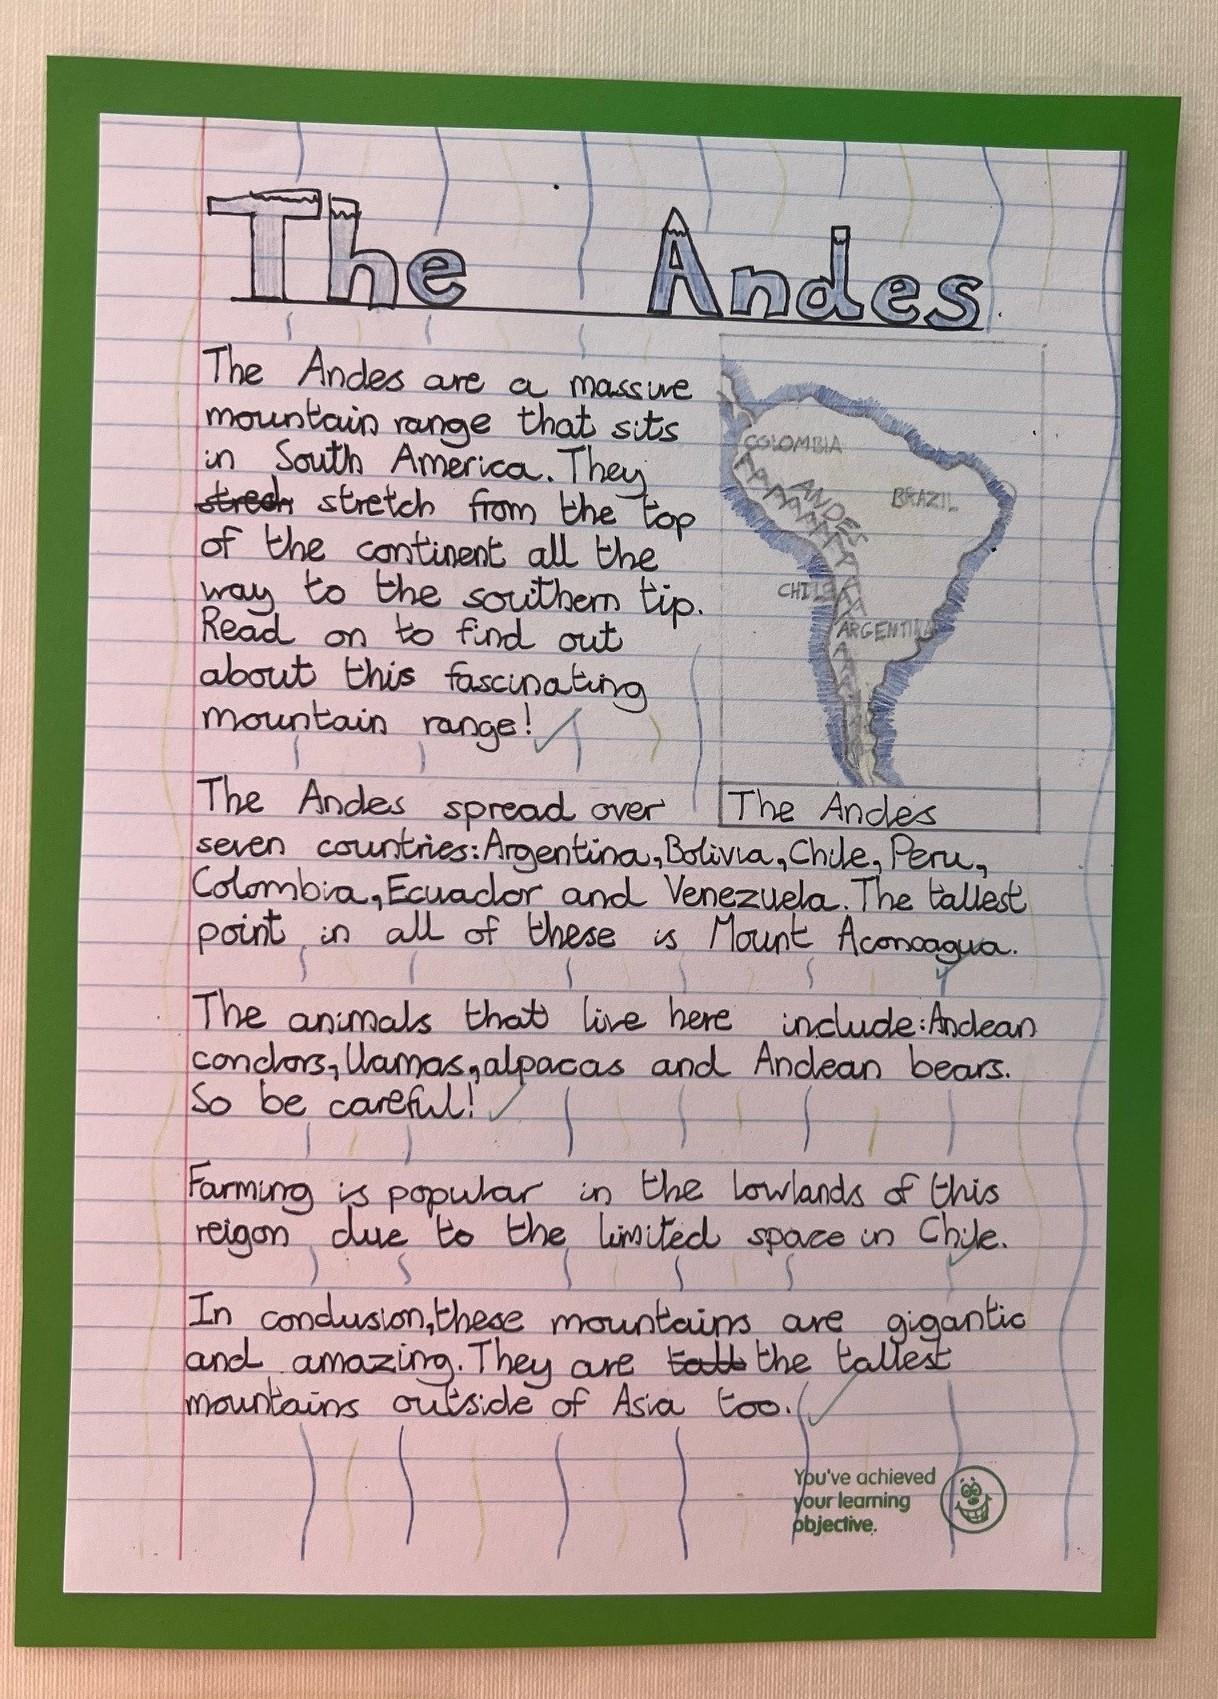 The Andes
The Andes are a massive
mountain range that sits
in South America. They
strech stretch from the top
of the continent all the
way to the southern tip.
Read on to find out
about this fascinating
mountain range!
COLOMBIA
ANDES
BRAZIL
CHILE
ARGENTINA
The Andes
The Andes spread over
seven countries: Argentina, Bolivia, Chile, Peru,
Colombia, Ecuador and Venezuela. The tallest
point in all of these is Mount Aconcagua.
The animals that live here include: Andean
condors, llamas, alpacas and Andean bears.
So be careful!
Farming is popular in the lowlands of this
reigon due to the limited space in Chile.
In conclusion, these mountains are gigantic
and amazing. They are tall the tallest
mountains outside of Asia too.
You've achieved
your learning
objective.